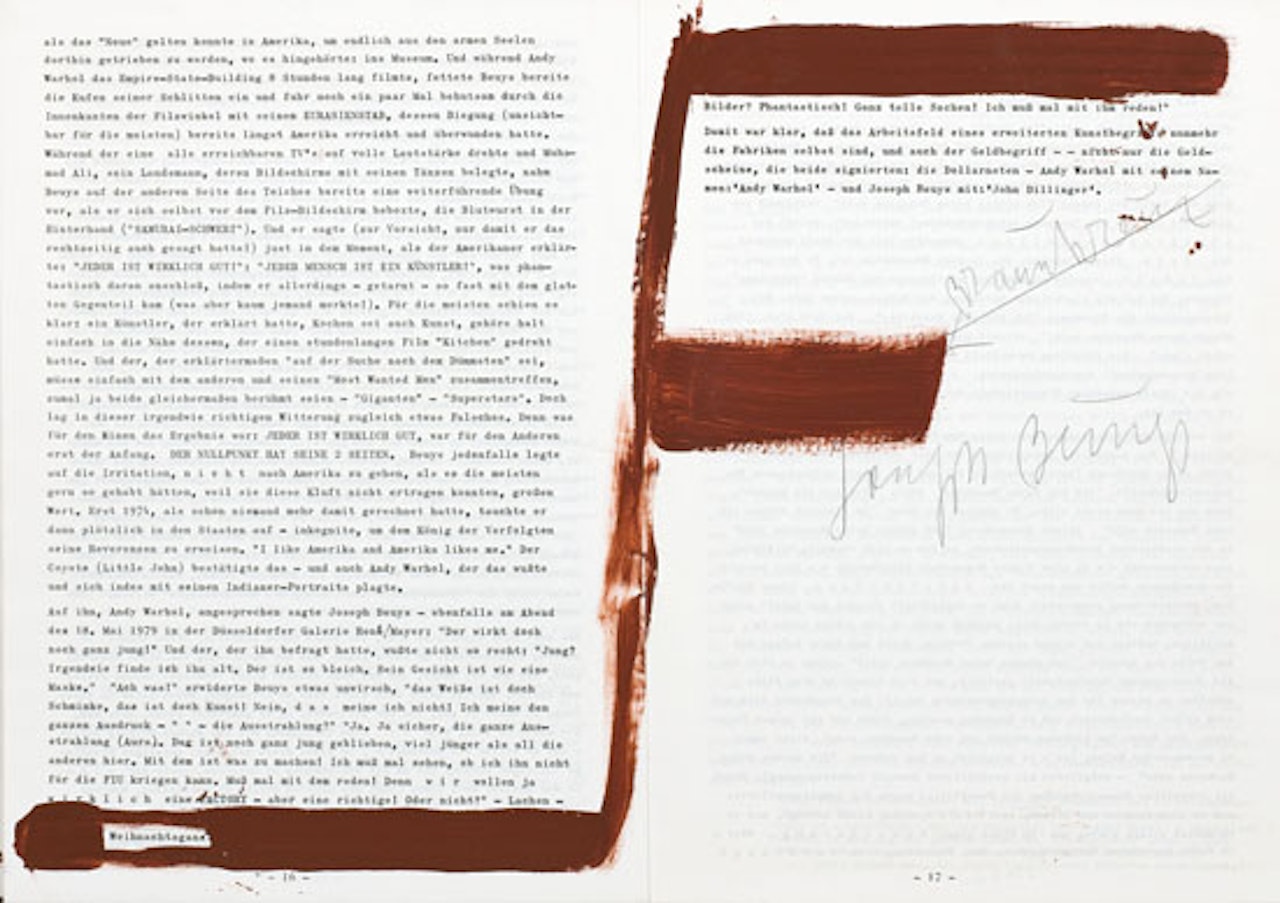 als das "Neue" gelten konnte in Amerika, um endlich aus den armen Seelen
dorthin getrieben zu werden, wo es hingehörte: ins Museum. Und während Andy
Warhol das Empire-State-Building 8 Stunden lang filmte, fettete Beuys bereits
die Kufen seiner Schlitten ein und fuhr noch ein paar Mal behutsam durch die
Innenkanten der Filzwinkel mit seinem EURASIENSTAB, dessen Biegung (unsicht-
bar für die meisten) bereits längst Amerika erreicht und überwunden hatte.
Während der eine alle erreichbaren TV's auf volle Lautstärke drehte und Muham-
mad Ali, sein Landsmann, deren Bildschirme mit seinen Tänzen belegte, nahm
Beuys auf der anderen Seite des Teiches bereits eine weiterführende Übung
vor, als er sich selbst vor dem Filz-Bildschirm beboxte, die Blutwurst in der
Hinterhand ("SAMURAI-SCHWERT"). Und er sagte (zur Vorsicht, nur damit er das
rechtzeitig auch gesagt hatte!) just in dem Moment, als der Amerikaner erklär-
te: "JEDER IST WIRKLICH GUT!": "JEDER MENSCH IST EIN KÜNSTLER!", was phan-
tastisch daran anschloß, indem er allerdings - getarnt - so fast mit dem glat-
ten Gegenteil kam (was aber kaum jemand merkte!). Für die meisten schien es
klar: ein Künstler, der erklärt hatte, Kochen sei auch Kunst, gehöre halt
einfach in die Nähe dessen, der einen stundenlangen Film "Kitchen" gedreht
hatte. Und der, der erklärtermaßen "auf der Suche nach dem Dümmsten" sei,
müsse einfach mit dem anderen und seinen "Most Wanted Men" zusammentreffen,
zumal ja beide gleichermaßen berühmt seien - "Giganten" - "Superstars". Doch
lag in dieser irgendwie richtigen Witterung zugleich etwas Falsches. Denn was
für den Einen das Ergebnis war: JEDER IST WIRKLICH GUT, war für den Anderen
erst der Anfang. DER NULLPUNKT HAT SEINE 2 SEITEN. Beuys jedenfalls legte
auf die Irritation, n i c h t nach Amerika zu gehen, als es die meisten
gern so gehabt hätten, weil sie diese Kluft nicht ertragen konnten, großen
Wert. Erst 1974, als schon niemand mehr damit gerechnet hatte, tauchte er
dann plötzlich in den Staaten auf - inkognito, um dem König der Verfolgten
seine Reverenzen zu erweisen. "I like Amerika and Amerika likes me." Der
Coyote (Little John) bestätigte das - und auch Andy Warhol, der das wußte
und sich indes mit seinen Indianer-Portraits plagte.
Auf ihn, Andy Warhol, angesprochen sagte Joseph Beuys - ebenfalls am Abend
des 18. Mai 1979 in der Düsseldorfer Galerie René/Mayer: "Der wirkt doch
noch ganz jung!" Und der, der ihn befragt hatte, wußte nicht so recht: "Jung?
Irgendwie finde ich ihn alt. Der ist so bleich. Sein Gesicht ist wie eine
Maske." "Ach was!" erwiderte Beuys etwas unwirsch, "das Weiße ist doch
Schminke, das ist doch Kunst! Nein, d a s meine ich nicht! Ich meine den
ganzen Ausdruck - " " - die Ausstrahlung?" "Ja. Ja sicher, die ganze Aus-
strahlung (Aura). Dug ist noch ganz jung geblieben, viel jünger als all die
anderen hier. Mit dem ist was zu machen! Ich muß mal sehen, ob ich ihn nicht
für die FIU kriegen kann. Muß mal mit dem reden! Denn w i r wollen ja
w i r k l i c h eine FACTORY - aber eine richtige! Oder nicht?" - Lachen -
Weihnachtsgans
- 16 -
Bilder? Phantastisch! Ganz tolle Sachen! Ich muß mal mit ihm reden!"
Damit war klar, daß das Arbeitsfeld eines erweiterten Kunstbegriffs nunmehr
die Fabriken selbst sind, und auch der Geldbegriff - - nicht nur die Geld-
scheine, die beide signierten: die Dollarnoten - Andy Warhol mit seinem Na-
men:'Andy Warhol' - und Joseph Beuys mit:'John Dillinger'.
Braunkreuz
Joseph Beuys
- 17 -